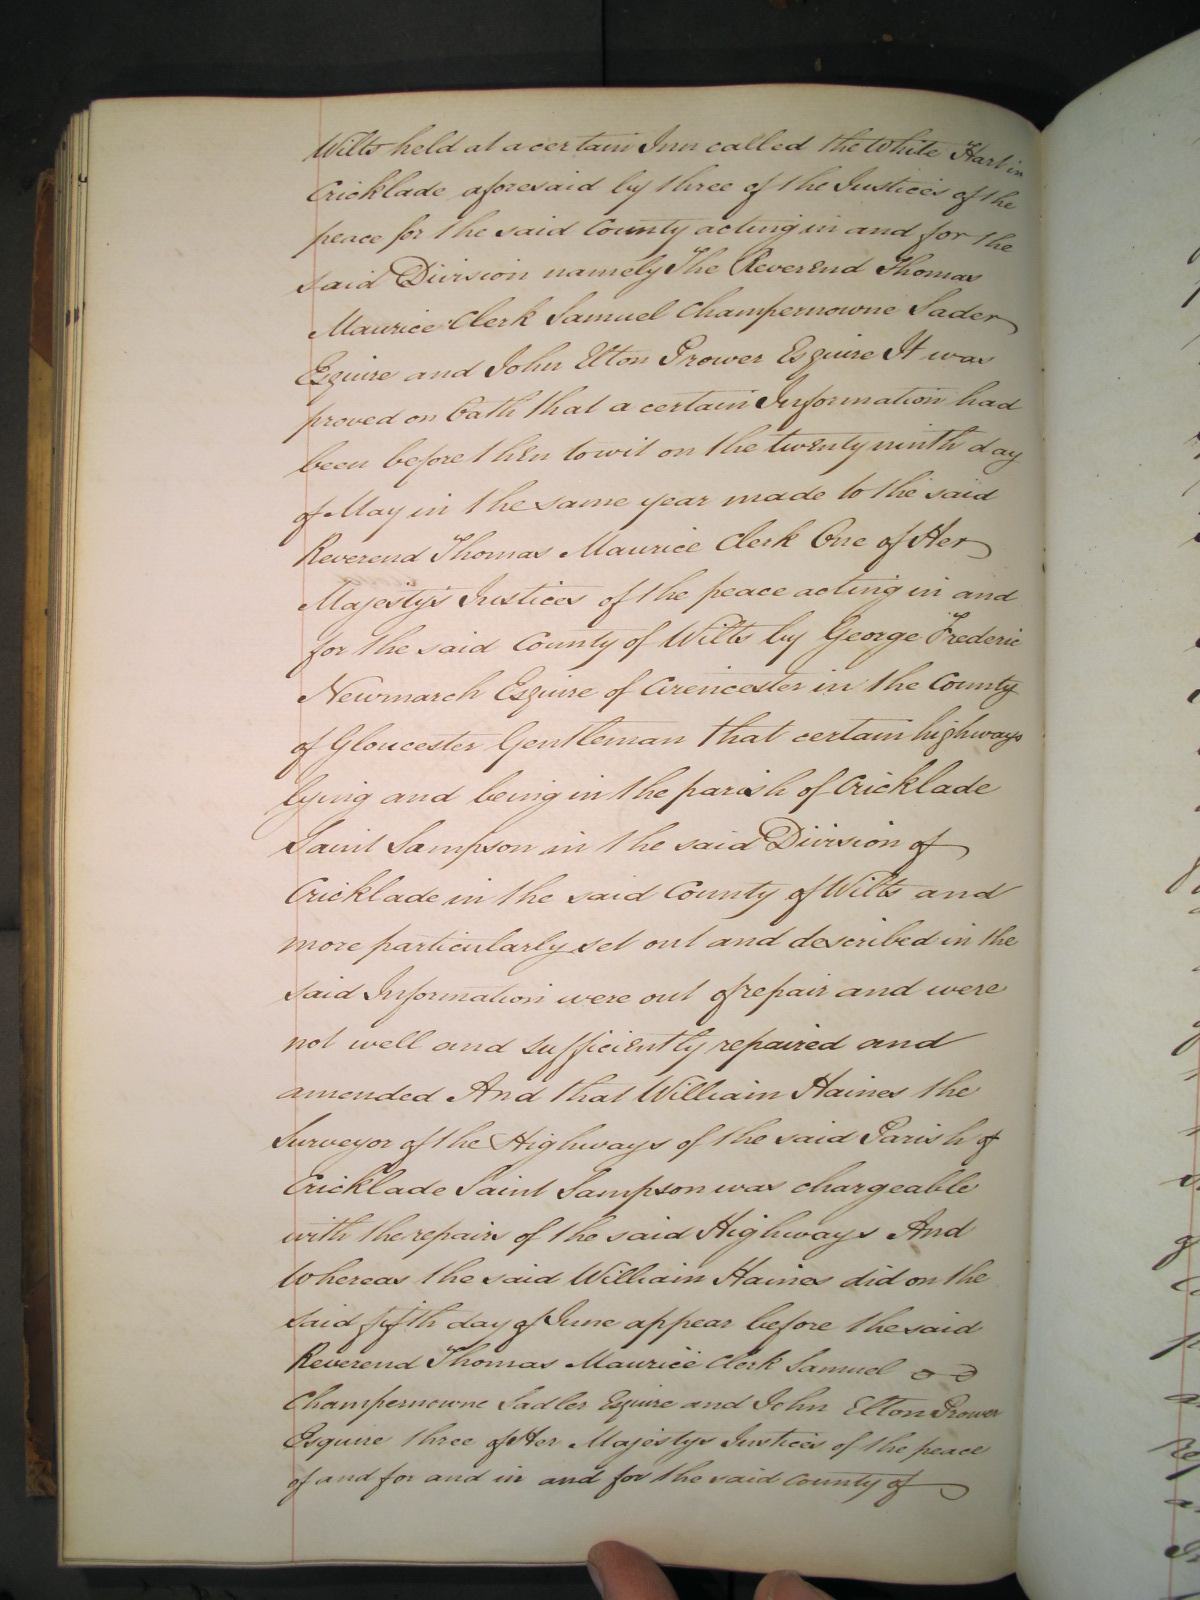 Wilts held at a certain Inn called the White Hart in
Cricklade aforesaid by three of the Justices of the
peace for the said County acting in and for the
said Division namely The Reverend Thomas
Maurice Clerk Samuel Champernowne Sader
Esquire and John Elton Prower Esquire It was
proved on Oath that a certain Information had
been before then to wit on the twenty ninth day
of May in the same year made to the said
Reverend Thomas Maurice Clerk One of Her
Majesty's Justices of the peace acting in and
for the said County of Wilts by George Frederic
Newmarch Esquire of Cirencester in the County
of Gloucester Gentleman that certain highways
lying and being in the parish of Cricklade
Saint Sampson in the said Division of
Cricklade in the said County of Wilts and
more particularly set out and described in the
said Information were out of repair and were
not well and sufficiently repaired and
amended And that William Haines the
Surveyor of the Highways of the said Parish of
Cricklade Saint Sampson was chargeable
with the repairs of the said Highways And
Whereas the said William Haines did on the
said fifth day of June appear before the said
Reverend Thomas Maurice Clerk Samuel
Champernowne Sadler Esquire and John Elton Prower
Esquire three of Her Majestys Justices of the peace
of and for and in and for the said County of